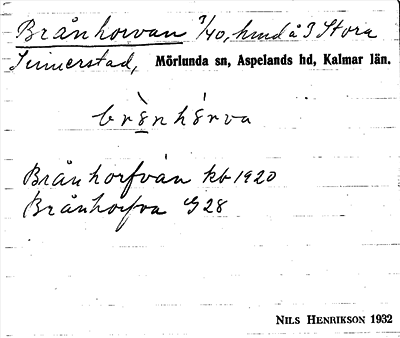 Brånhorvan 1/40, hmd å 3 Stora
Simmerstad, Mörlunda sn, Aspelands hd, Kalmar län.
brånhårva
Brånhorfvan kb 1920
Brånhorfva G 28
NILS HENRIKSON 1932